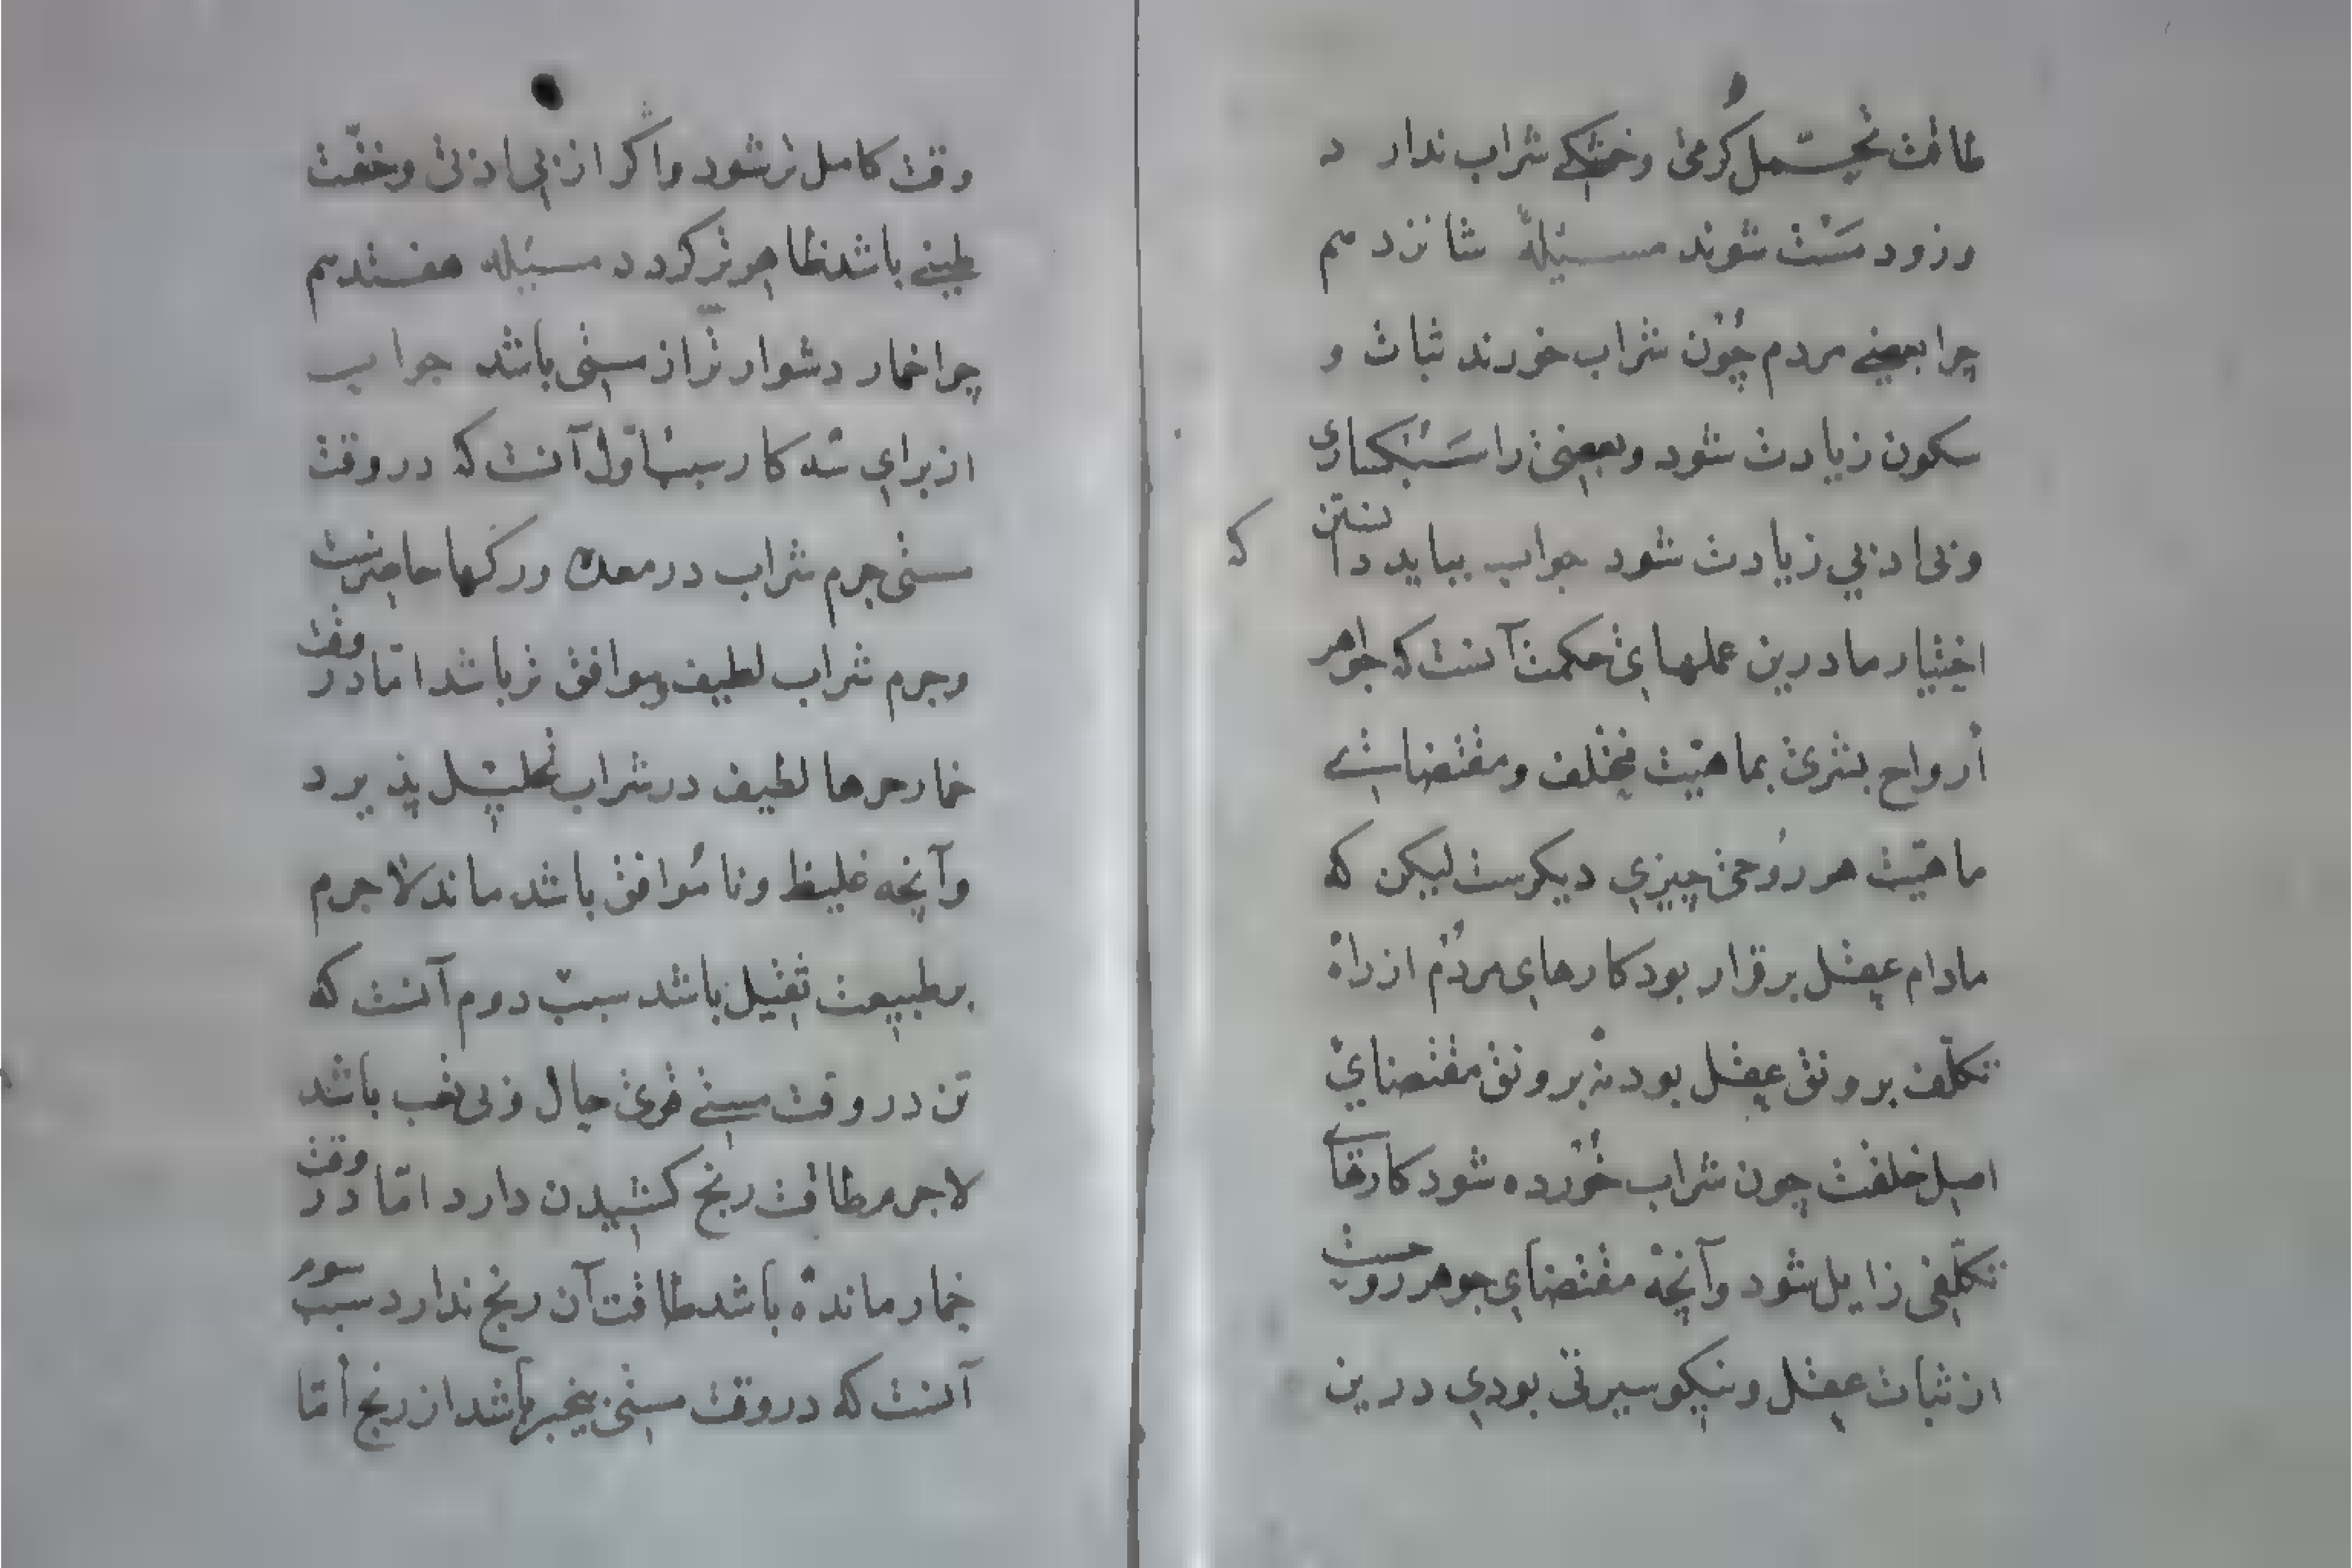 طاقت تحمل گرمی و خشکی شراب ندارد
و زود مست شوند مسئله شانزدهم
چرا بعضی مردم چون شراب خورند ثبات و
سکون زیادت شود و بعضی را سبکساری
و بی ادبی زیادت شود جواب بباید دانستن که
اختیار ما درین عملهای حکمت آنست که جواهر
ارواح بشری بماهیت مختلف و مقتضای
ماهیت هر روحی چیزی دیگرست لیکن که
مادام عقل برقرار بود کارهای مردم از راه
تکلف بر وفق عقل بود نه بر وفق مقتضای
اصل خلقت چون شراب خورده شود کارهای
تکلفی زایل شود و آنچه مقتضای جوهر روحست
از ثبات عقل و نیکو سیرتی بودی درین
وقت کامل تر شود و اگر از بی ادبی و خفت
طبعی باشد ظاهرتر گردد مسئله هفتدهم
چرا خمار دشوارتر از مستی باشد جواب
از برای سه کار سبب اول آنست که در وقت
مستی جرم شراب در معده و رگها حاضرست
و جرم شراب لطیف و موافق تر باشد اما در وقت
خمار جرمها لطیف در شراب تحلیل پذیرد
و آنچه غلیظ و ناموافق باشد ماند لاجرم
بر طبیعت ثقیل باشد سبب دوم آنست که
تن در وقت مستی قوی حال و بی تعب باشد
لاجرم طاقت رنج کشیدن دارد اما در وقت
خمار مانده باشد طاقت آن رنج ندارد سبب سوم
آنست که در وقت مستی بیخبر باشد از رنج اما